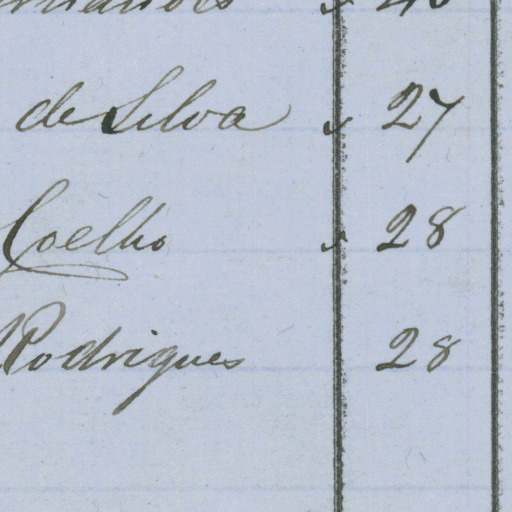 de Silva " 27
Coelho " 28
Rodrigues 28